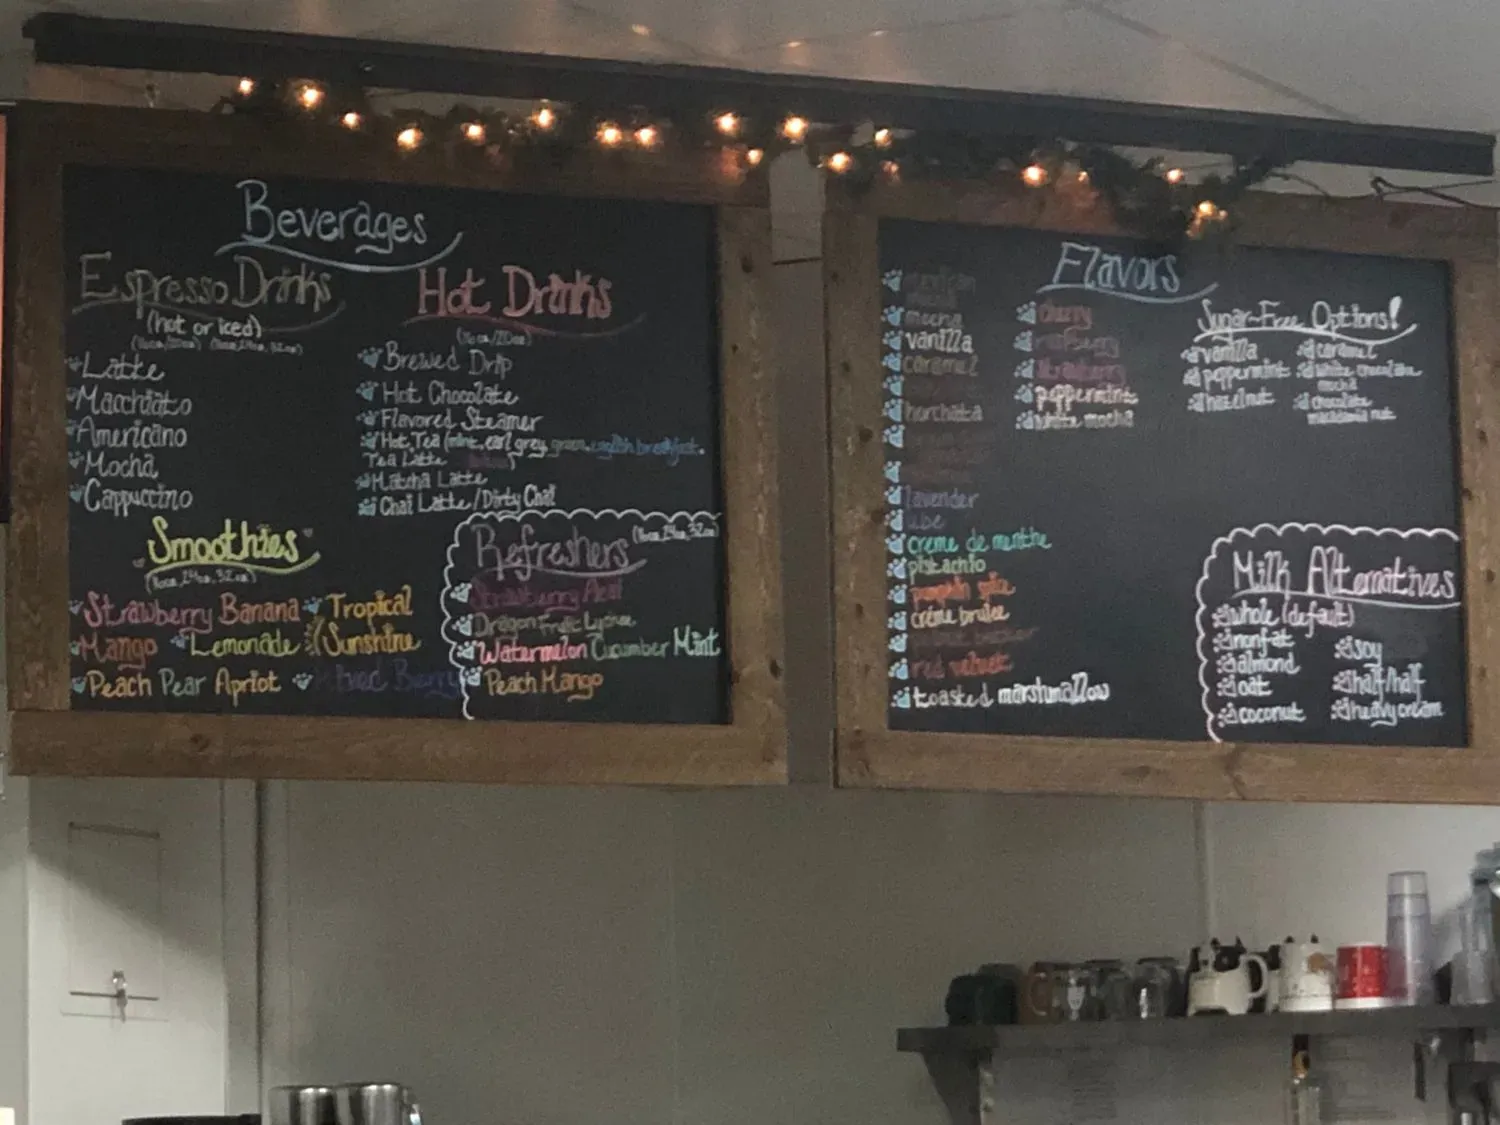 Beverages
Espresso Drinks
(hot or iced)
Latte
Macchiato
Americano
Mocha
Cappuccino
Hot Drinks
Brewed Drip
Hot Chocolate
Flavored Steamer
Hot Tea (mint, earl grey, green, english breakfast,
Tea Latte
Matcha Latte
Chai Latte/Dirty Chai
Smoothies
(16oz, 24oz, 32oz)
Strawberry Banana
Tropical
Mango
Lemonade
Sunshine
Peach Pear Apriot
Mixed Berry
Refreshers
(16oz, 24oz, 32oz)
Strawberry Acai
Dragon Fruit Lychee
Watermelon Cucumber Mint
Peach Mango
Flavors
mexican
mocha
mocha
vanilla
caramel
horchata
lavender
ube
creme de menthe
pistachio
pumpkin spice
créme brulee
red velvet
toasted marshmallow
cherry
raspberry
strawberry
peppermint
white mocha
Sugar-Free Options!
vanilla
peppermint
hazelnut
caramel
white chocolate
mocha
chocolate
macadamia nut
Milk Alternatives
whole (default)
nonfat
almond
oat
coconut
soy
half/half
heavy cream